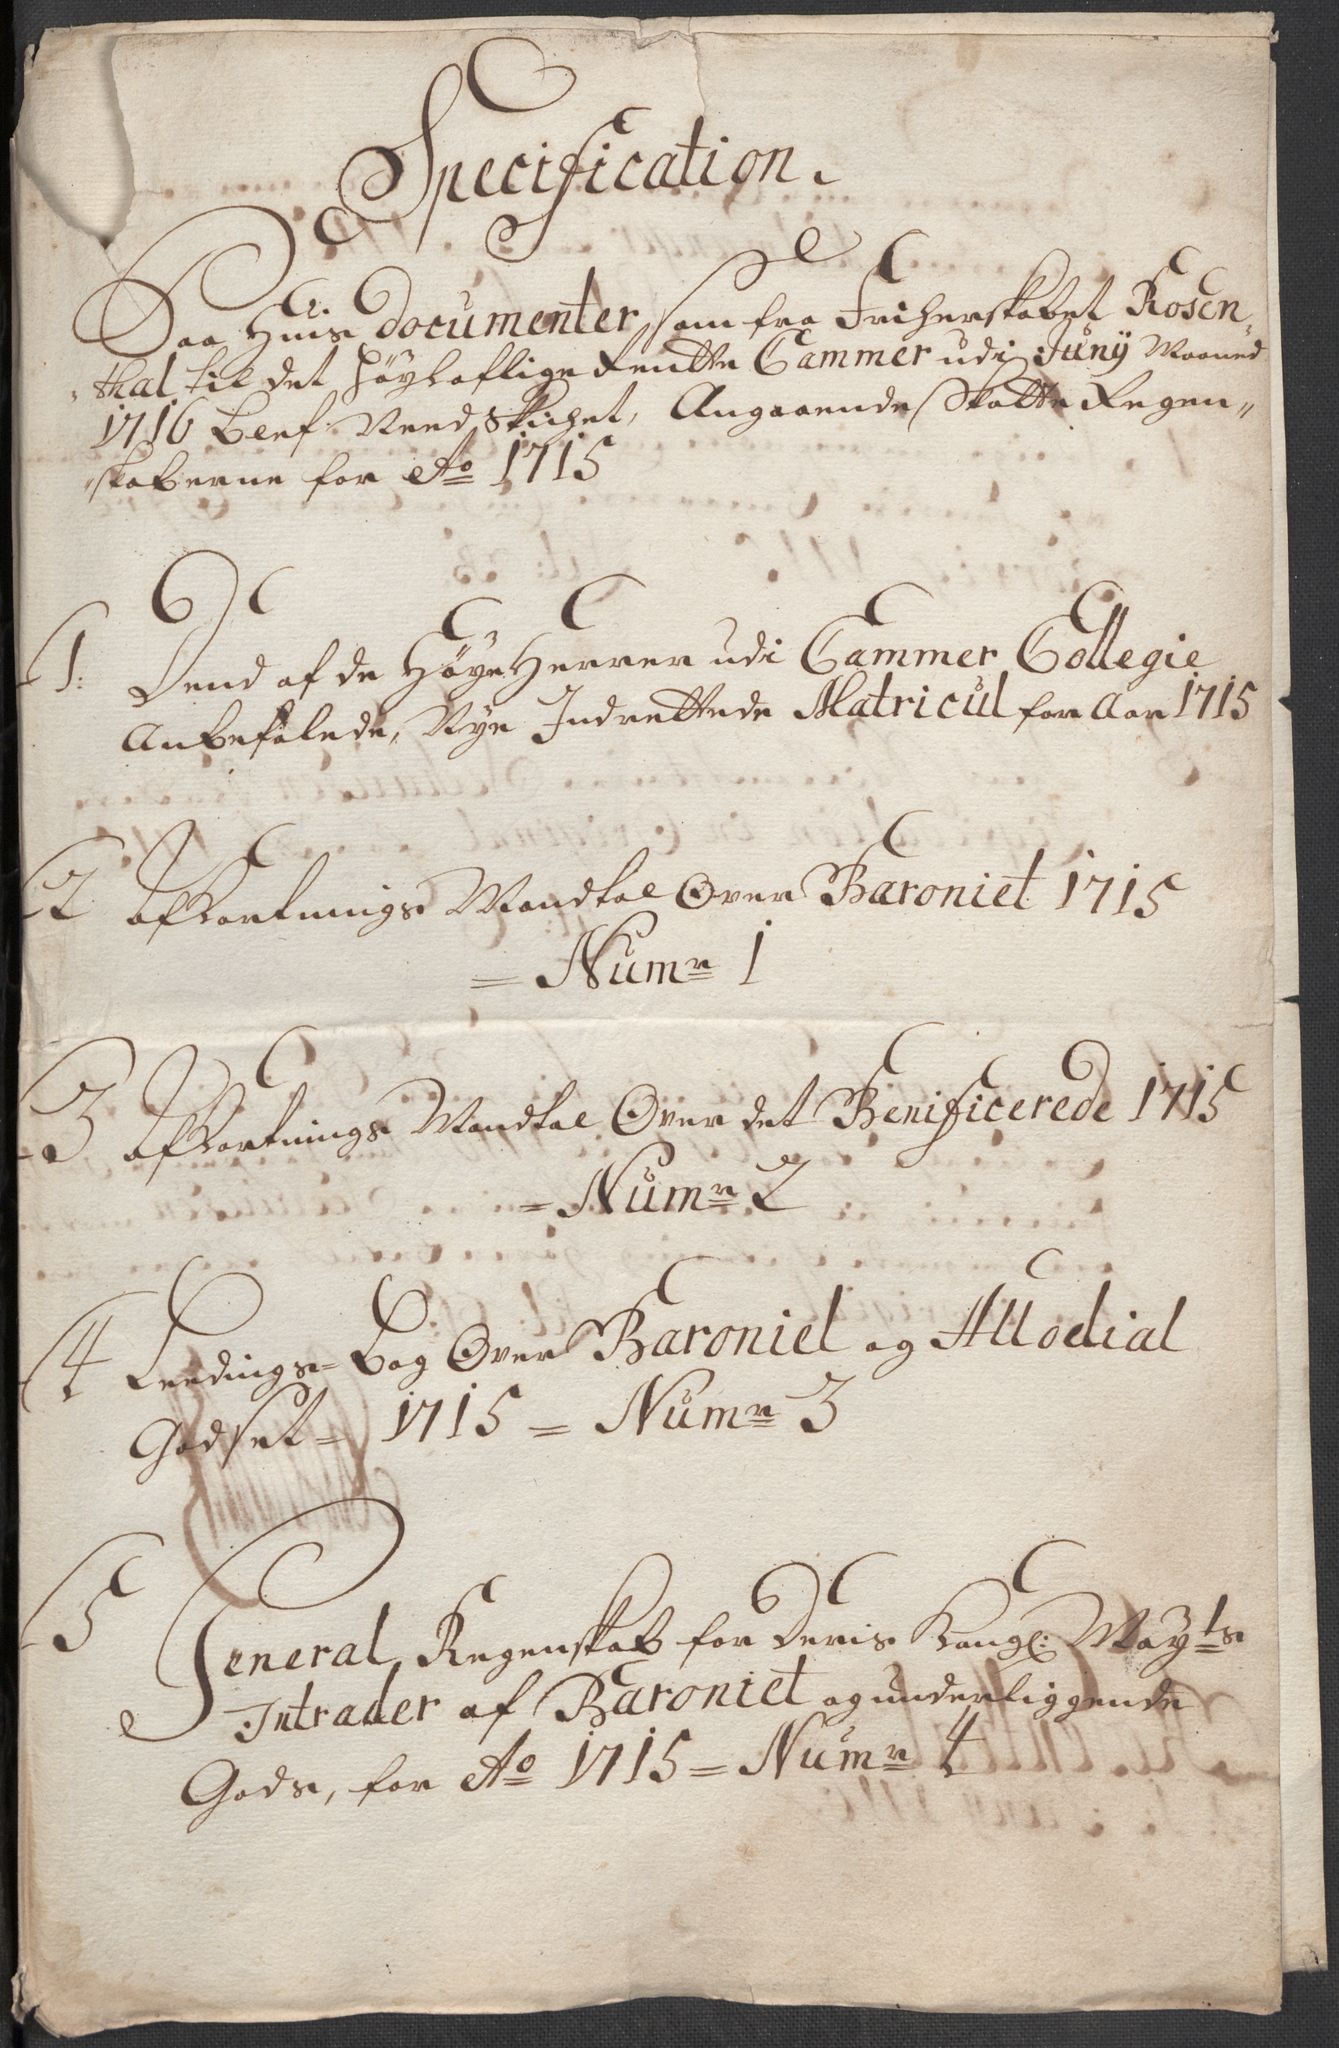 Specification.
Paa Huis documenter, som fra Friherskabet Rosen„
„thal til det höÿloflige Rentte Cammer udi Junÿ Maaned
1716 blef Need Skichet, Angaaende Skatte Regen„
„skaberne for Ao 1715
1: Dend af de Höye Herrer udi Cammer Collegie
Anbefalede, Nye Indrettede Matricul for Aar 1715
2 Afkortnings Mandtal Over Baroniet 1715
= Numr 1
3 Afkortnings Mandtal Over det Benificerede 1715
= Numr 2
4 Leedings- Bog Over Baroniet og Allodial
Godset = 1715 = Numr 3
5 General, Regenskab for Deris Kongl: Mayts
Intrader af Baroniet og underliggende
Gods, for Ao 1715 = Numr 4